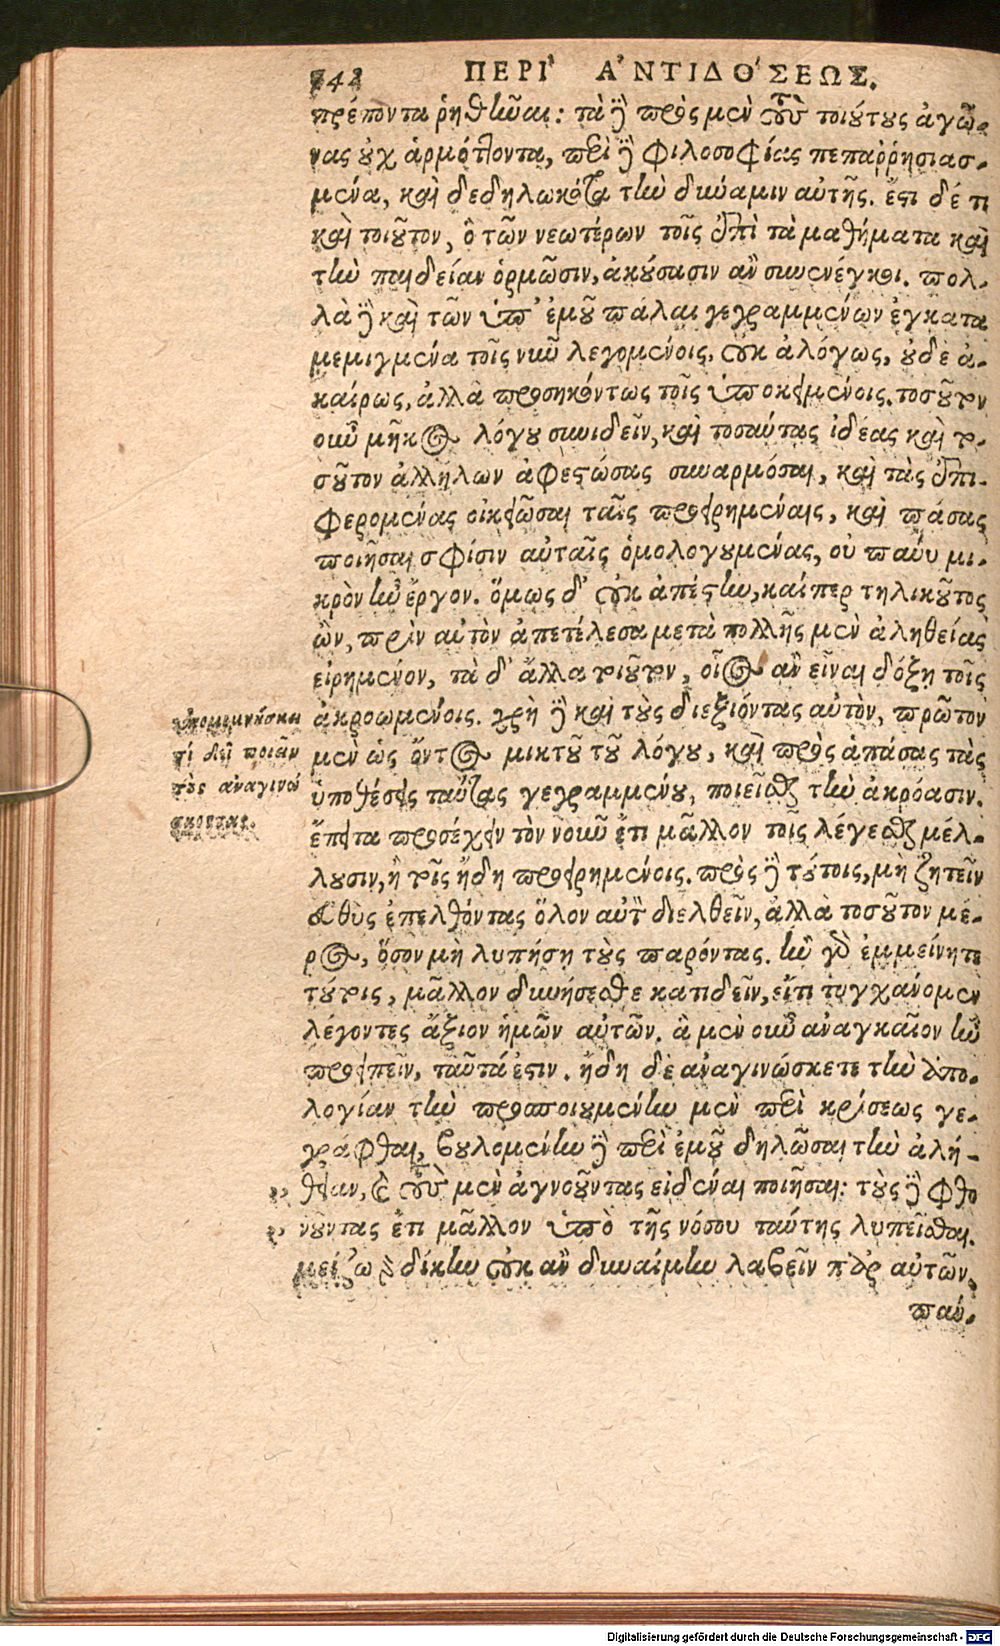 742 ΠΕΡΙ᾽ Α᾽ΝΤΙΔΟ´ΣΕΩΣ.
πρέποντα ῥηθῆναι: τὰ δὲ πρὸς μὲν τοὺς τοιούτους ἀγῶ-
νας οὐχ ἁρμόττοντα, περὶ δὲ φιλοσοφίας πεπαῤῥησιασ-
μένα, καὶ δεδηλωκότα τὴν δύναμιν αὐτῆς. ἔστι δέ τι
καὶ τοιοῦτον, ὃ τῶν νεωτέρων τοῖς ἐπὶ τὰ μαθήματα καὶ
τὴν παιδείαν ὁρμῶσιν, ἀκούσασιν ἂν συνενέγκοι. πολ-
λὰ δὲ καὶ τῶν ὑπ᾽ ἐμοῦ πάλαι γεγραμμένων ἐγκατα
μεμιγμένα τοῖς νῦν λεγομένοις, οὐκ ἀλόγως, οὐδὲ ἀ-
καίρως, ἀλλὰ προσηκόντως τοῖς ὑποκειμένοις. τοσοῦτον
οὖν μῆκος λόγου συνιδεῖν, καὶ τοσαύτας ἰδέας καὶ το-
σοῦτον ἀλλήλων ἀφεστώσας συναρμόσαι, καὶ τὰς ἐπι-
φερομένας οἰκειῶσαι ταῖς προειρημέναις, καὶ πάσας
ποιῆσαι σφίσιν αὐταῖς ὁμολογουμένας, οὐ πάνυ μι-
κρὸν ἦν ἔργον. ὅμως δ᾽ οὐκ ἀπέστην, καίπερ τηλικοῦτος
ὢν, πρὶν αὐτὸν ἀπετέλεσα μετὰ πολλῆς μὲν ἀληθείας
εἰρημένον, τὰ δ᾽ ἄλλα τοιοῦτον, οἷος ἂν εἶναι δόξῃ τοῖς
ἀκροωμένοις. χρὴ δὲ καὶ τοὺς διεξιόντας αὐτὸν, πρῶτον
μὲν ὡς ὄντος μικτοῦ τοῦ λόγου, καὶ πρὸς ἁπάσας τὰς
ὑποθέσεις ταύτας γεγραμμένου, ποιεῖσθαι τὴν ἀκρόασιν.
ἔπειτα προσέχειν τὸν νοῦν ἔτι μᾶλλον τοῖς λέγεσθαι μέλ-
λουσιν, ἢ τοῖς ἤδη προειρημένοις. πρὸς δὲ τούτοις, μὴ ζητεῖν
εὐθὺς ἐπελθόντας ὅλον αὐτὸν διελθεῖν, ἀλλὰ τοσοῦτον μέ-
ρος, ὅσον μὴ λυπήσῃ τοὺς παρόντας. ἢν γὰρ ἐμμείνητε
τούτοις, μᾶλλον δυνήσεσθε κατιδεῖν, εἴ τι τυγχάνομεν
λέγοντες ἄξιον ἡμῶν αὐτῶν. ἃ μὲν οὖν ἀναγκαῖον ἦν
προειπεῖν, ταῦτά ἐστιν. ἤδη δὲ ἀναγινώσκετε τὴν ἀπο-
λογίαν τὴν προσποιουμένην μὲν περὶ κρίσεως γε-
γράφθαι, βουλομένην δὲ περὶ ἐμοῦ δηλῶσαι τὴν ἀλή-
θειαν, καὶ τοὺς μὲν ἀγνοοῦντας εἰδέναι ποιῆσαι: τοὺς δὲ φθο
νοῦντας ἔτι μᾶλλον ὑπὸ τῆς νόσου ταύτης λυπεῖσθαι.
μείζω γὰρ δίκην οὐκ ἂν δυναίμην λαβεῖν παρ᾽ αὐτῶν.
παύ-
ὑπομιμνήσκει
τί δεῖ ποιεῖν
τοὺς ἀναγινώ
σκοντας.
Digitalisierung gefördert durch die Deutsche Forschungsgemeinschaft - DFG